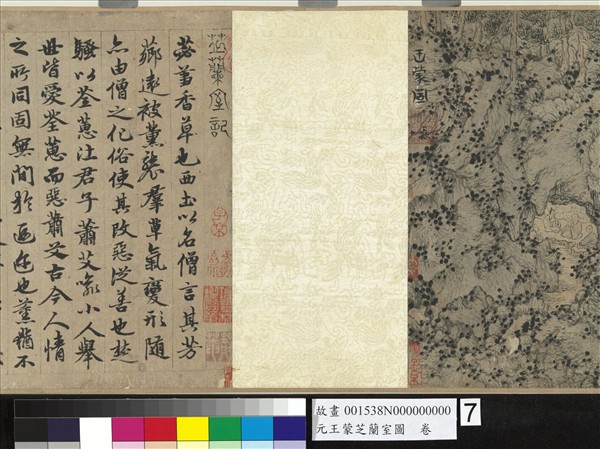 王蒙圖
芝蘭室記
苾蒭香草也西土以名僧言其芳
薌遠被薰襲羣草氣變形隨
亦由僧之化俗使其改惡從善也楚
騷以荃蕙注君子蕭艾喻小人舉
世皆愛荃蕙而惡蕭艾古今人情
之所同固無間於遐迩也薰蕕不
故畫 001538N000000000
7
元王蒙芝蘭室圖 卷